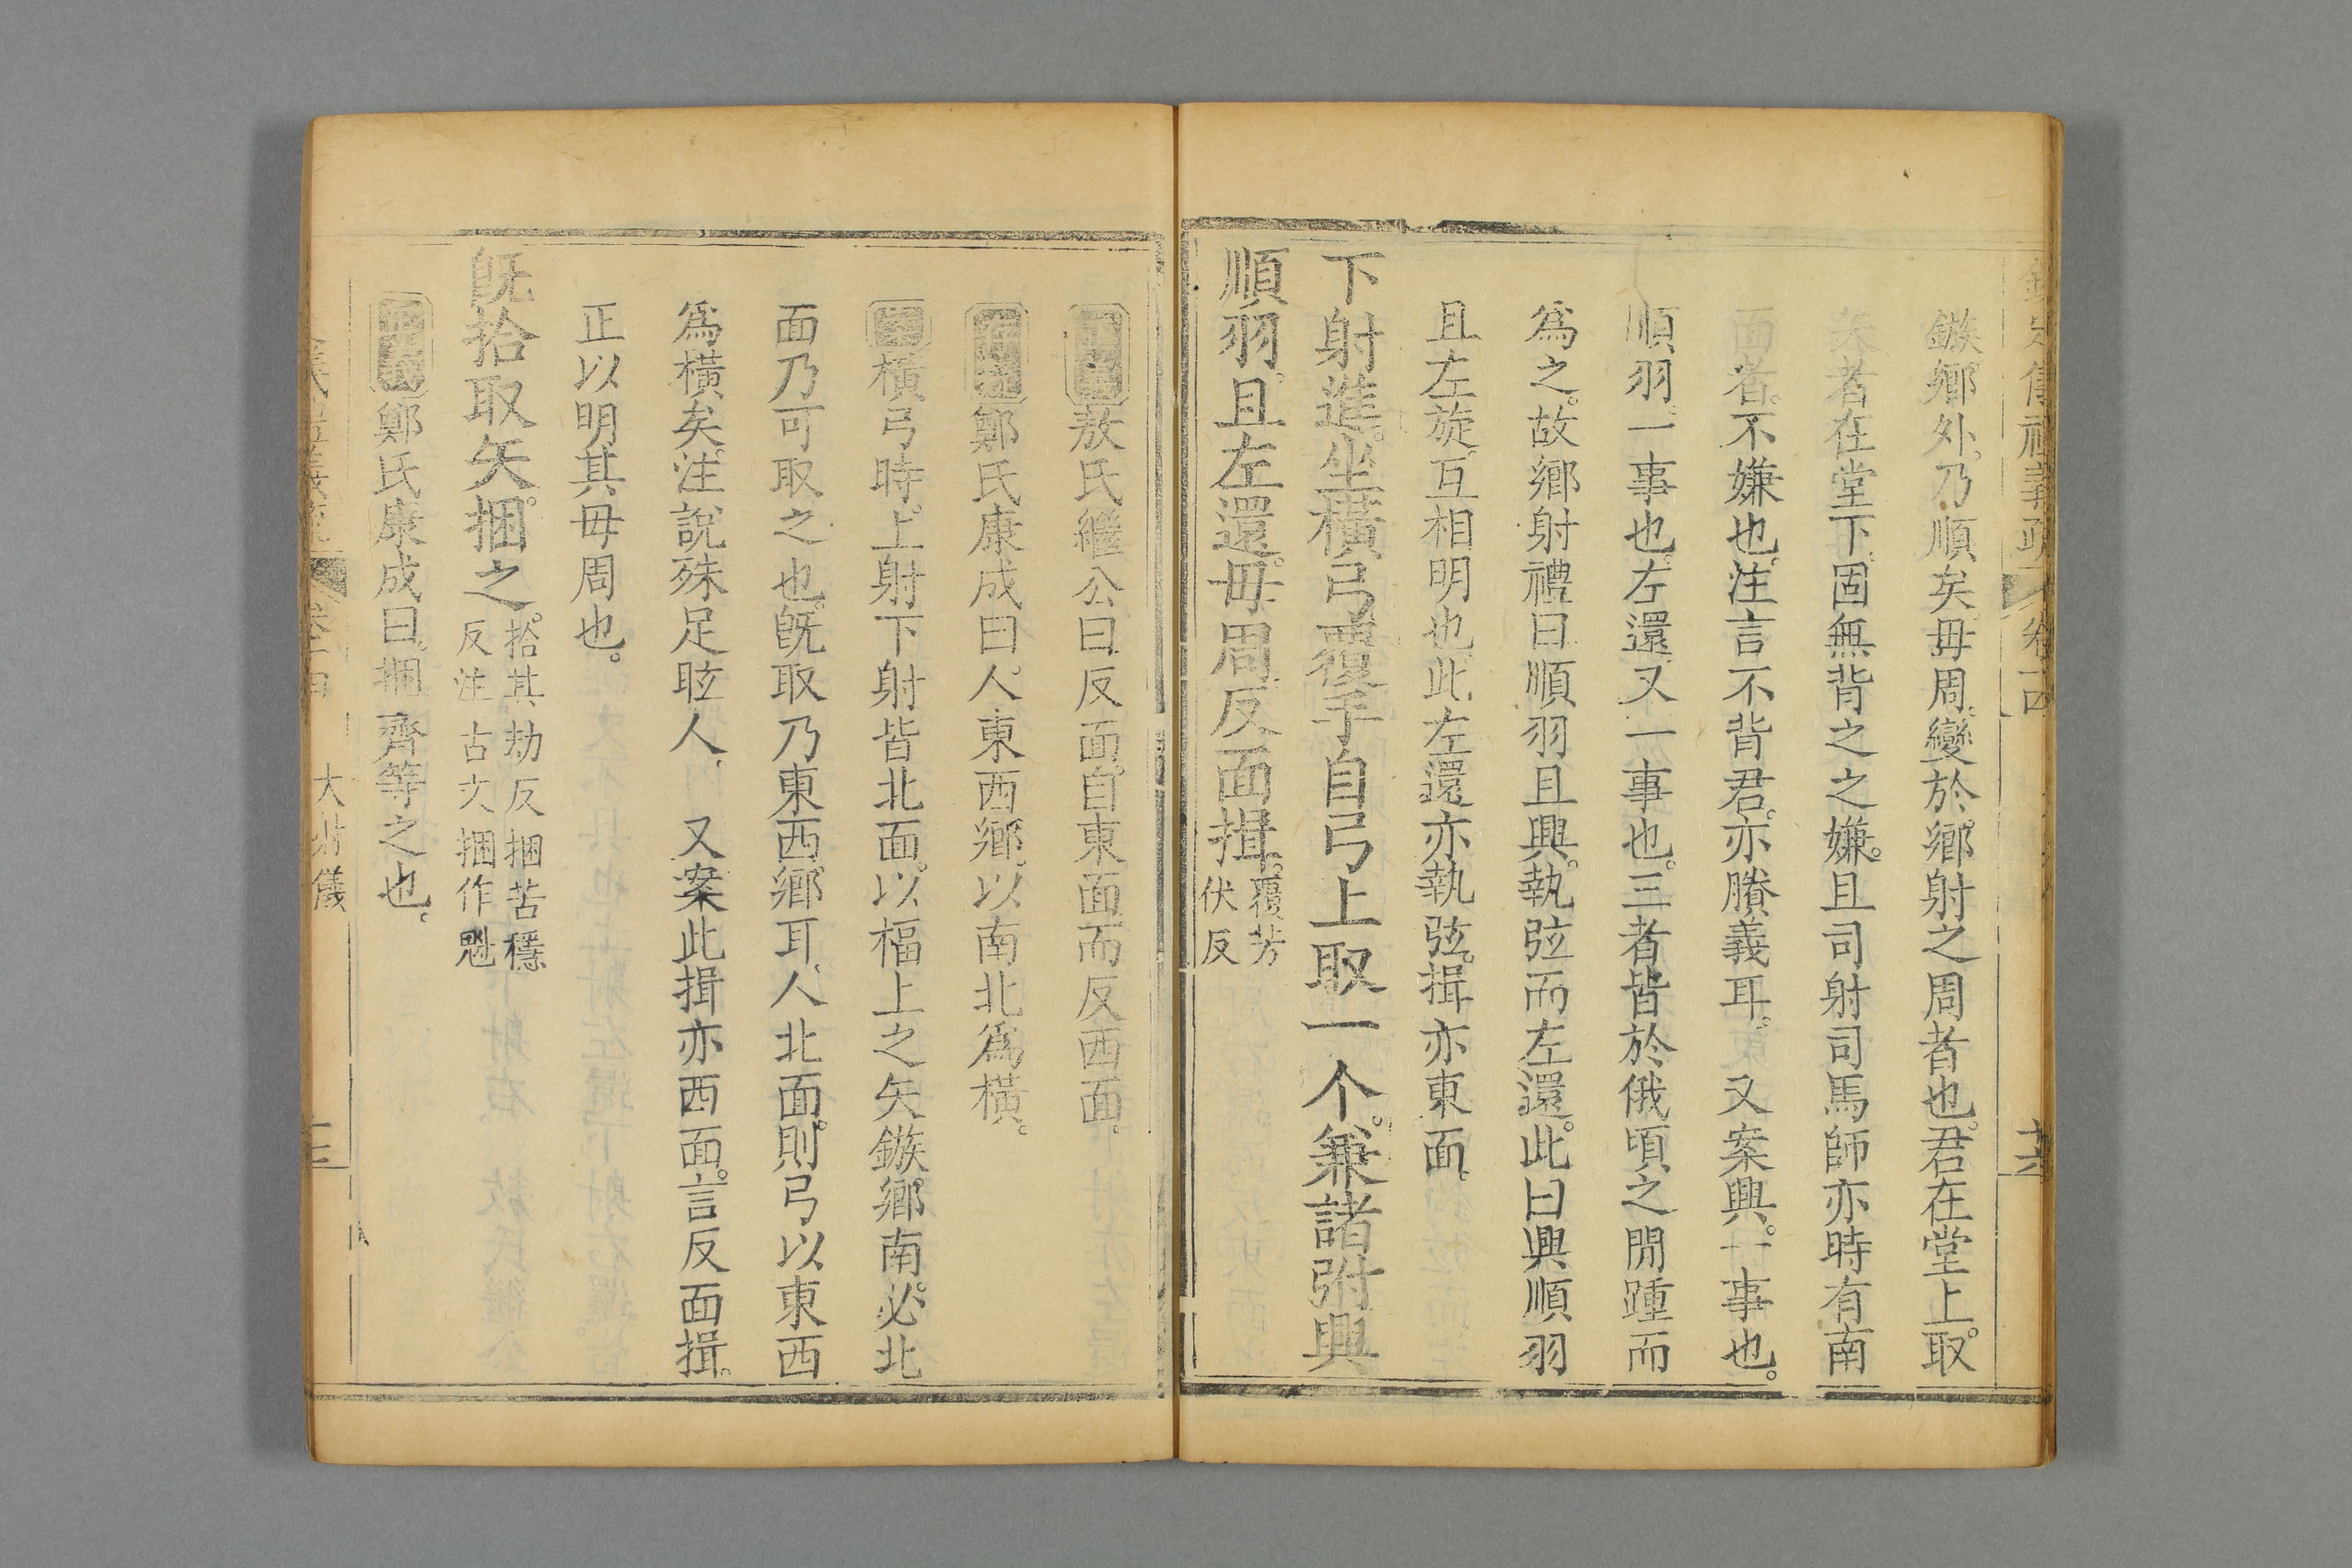 欽定儀禮義疏 卷十四
鏃鄉外乃順矣毋周變於鄉射之周者也君在堂上取
矢者在堂下固無背之之嫌且司射司馬師亦時有南
面者不嫌也注言不背君亦賸義耳 又案興一事也
順羽一事也左還又一事也三者皆於俄頃之閒踵而
爲之故鄉射禮曰順羽且興執弦而左還此曰興順羽
且左旋互相明也此左還亦執弦揖亦東面
下射進坐橫弓覆手自弓上取一个兼諸弣興
順羽且左還毋周反面揖 覆芳
伏反
敖氏繼公曰反面自東面而反西面
鄭氏康成曰人東西鄉以南北爲橫
案橫弓時上射下射皆北面以楅上之矢鏃鄉南必北
面乃可取之也旣取乃東西鄉耳人北面則弓以東西
爲橫矣注說殊足眩人 又案此揖亦西面言反面揖
正以明其毋周也
旣拾取矢捆之 拾其劫反捆苦穩
反注古文捆作魁
鄭氏康成曰捆齊等之也
大射儀